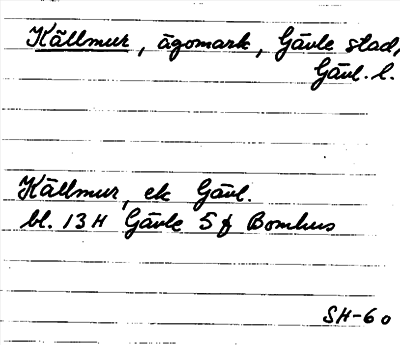 Källmur, ägomark, Gävle stad,
Gävl. l.
Källmur, ek Gävl.
bl. 13 H Gävle 5 f Bomhus
SH-60